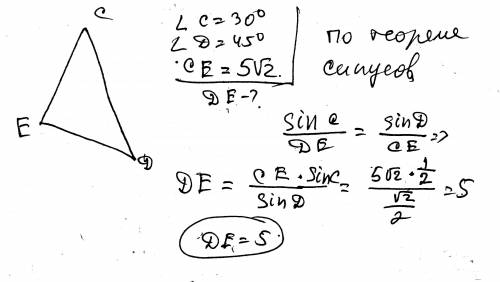 C
E
D
∠ C = 30°
∠ D = 45°
CE = 5√2.
DE - ?
по теореме
синусов
sin C / DE = sin D / CE =>
DE = CE · sin C / sin D = 5√2 · 1/2 / √2/2 = 5
DE = 5